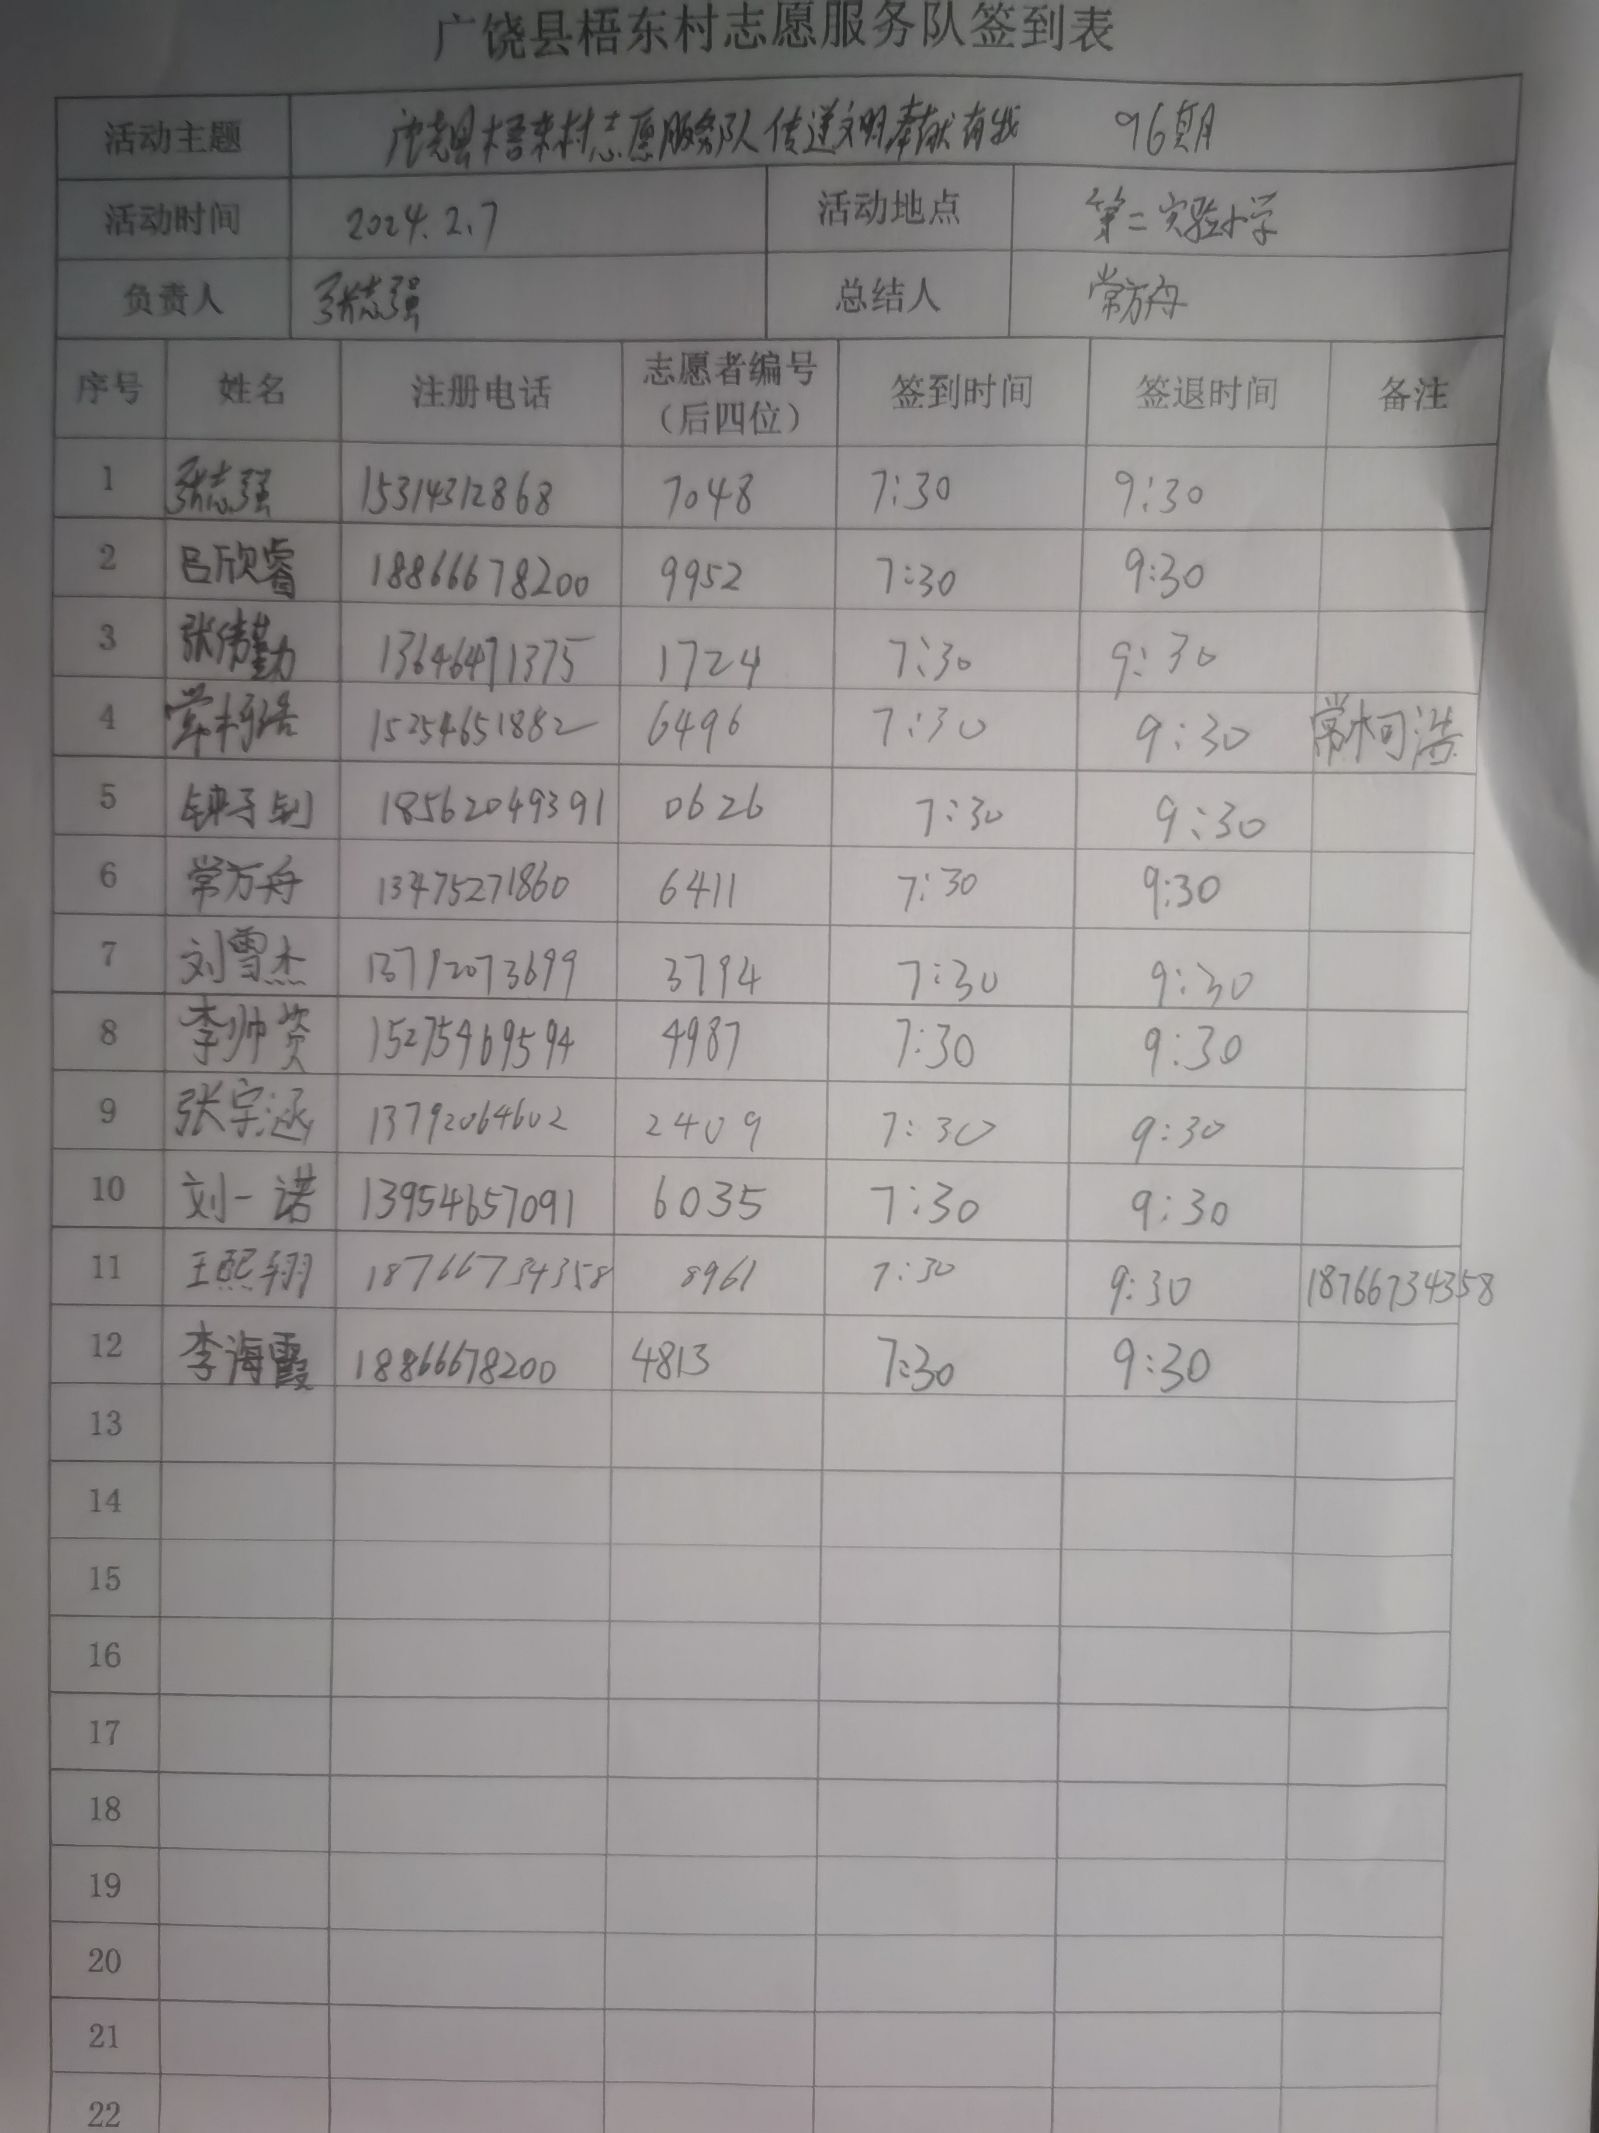 广饶县梧东村志愿服务队签到表
活动主题 广饶县梧东村志愿服务队传递文明奉献有我 96期
活动时间 2024.2.7 活动地点 第二实验小学
负责人 张志强 总结人 常方舟
序号 姓名 注册电话 志愿者编号（后四位） 签到时间 签退时间 备注
1 张志强 15314312868 7048 7:30 9:30
2 吕欣睿 18866678200 9952 7:30 9:30
3 张倩勤 13646471375 1724 7:30 9:30
4 常柯浩 15254651882 6496 7:30 9:30 常柯浩
5 钟子钊 18562049391 0626 7:30 9:30
6 常方舟 13475271860 6411 7:30 9:30
7 刘雪杰 13792073699 3794 7:30 9:30
8 李帅 15275469594 4987 7:30 9:30
9 张宇涵 13792064602 2409 7:30 9:30
10 刘一诺 13954657091 6035 7:30 9:30
11 王熙翔 18766734358 8961 7:30 9:30 18766734358
12 李海霞 18866678200 4813 7:30 9:30
13
14
15
16
17
18
19
20
21
22